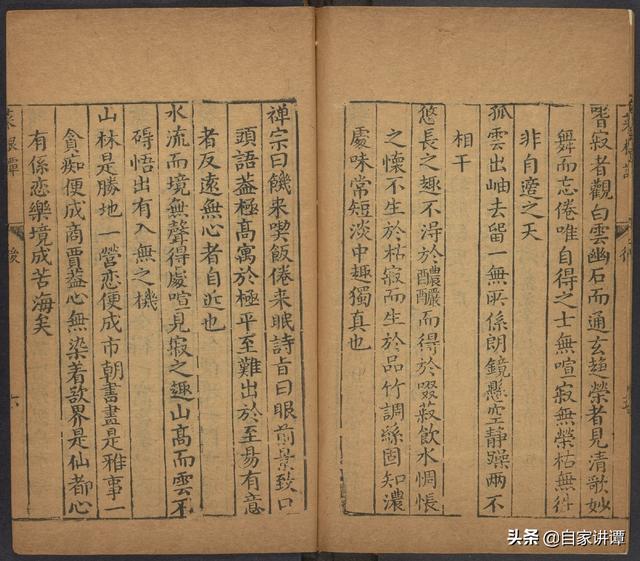 嗜寂者觀白雲幽石而通玄趨榮者見清歌妙
舞而忘倦唯自得之士無喧寂無榮枯無徃
非自適之天
孤雲出岫去留一無所係朗鏡懸空靜躁兩不
相干
悠長之趣不得於醲釅而得於啜菽飲水惆悵
之懷不生於枯寂而生於品竹調絲固知濃
處味常短淡中趣獨真也
禪宗曰饑來喫飯倦來眠詩旨曰眼前景致口
頭語蓋極高寓於極平至難出於至易有意
者反遠無心者自近也
水流而境無聲得處喧見寂之趣山高而雲不
碍悟出有入無之機
山林是勝地一營戀便成市朝書畫是雅事一
貪痴便成商賈蓋心無染着欲界是仙都心
有係戀樂境成苦海矣
菜根譚 後 六
头条 @自家讲谭